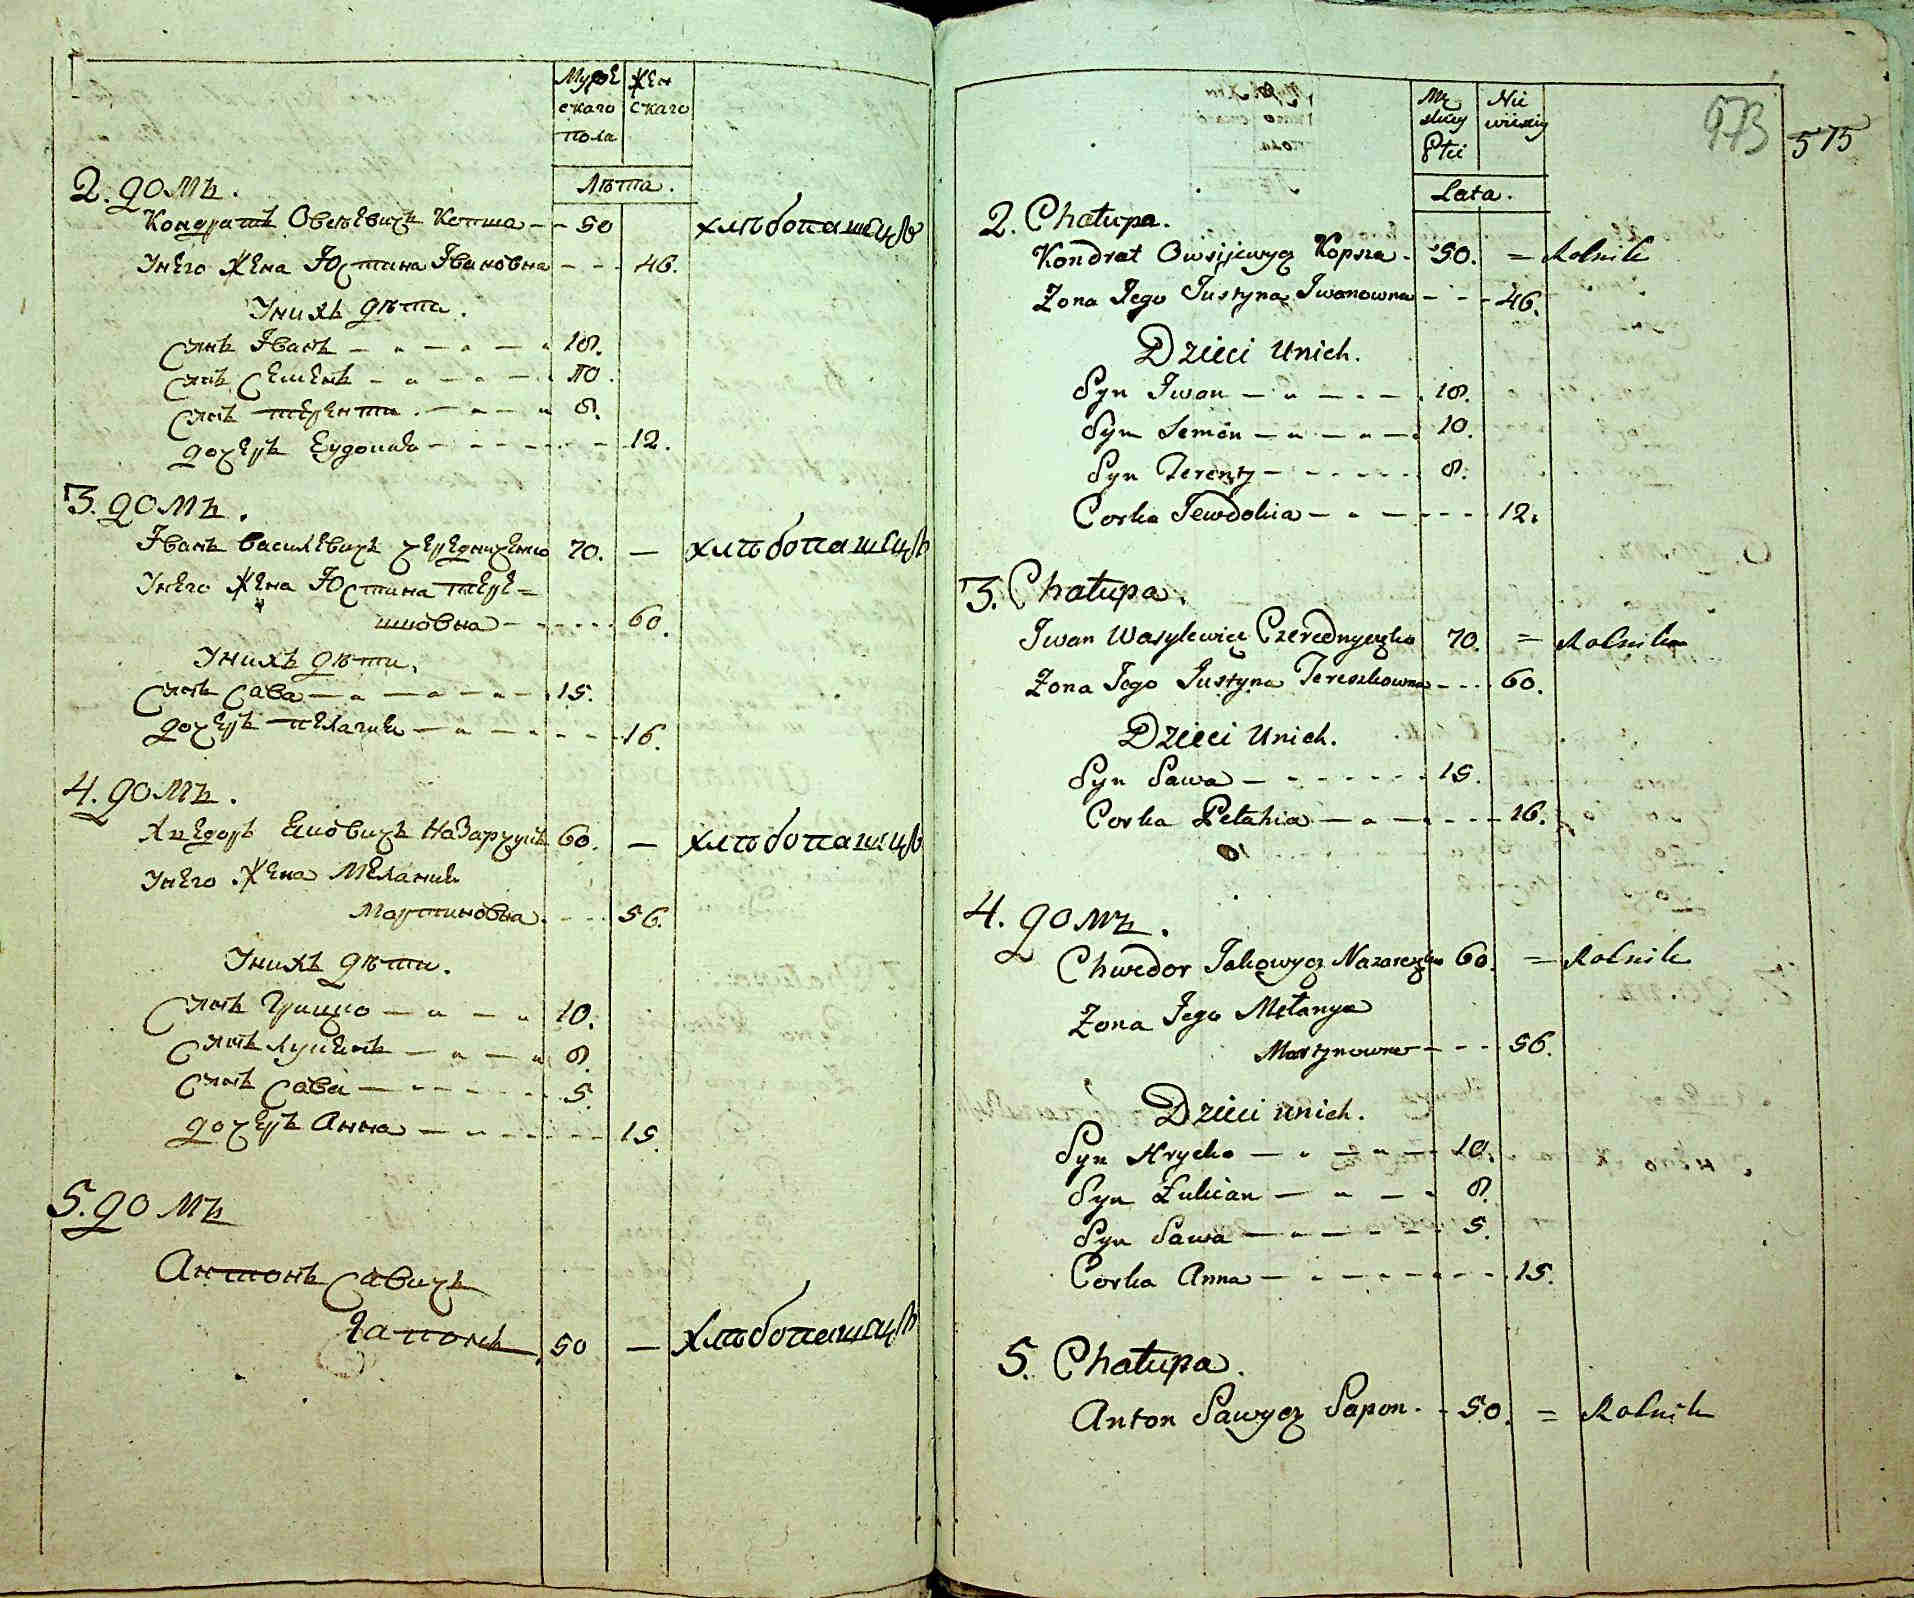 Мужескаго пола
Женскаго
Лѣта.
2. домъ.
Кондратъ Овсѣевичъ Копша - - 50
хлѣбопашецъ
Унего Жена Юстина Івановна - - - 46.
Унихъ дѣти.
Сынъ Іванъ - - - - - 18.
Сынъ Семенъ - - - - 10.
Сынъ терентей - - - - 8.
дочеръ Еудокия - - - - - 12.
3. домъ.
Іванъ василевичъ чередниченко 70. —
хлѣбопашецъ
Унего Жена Юстина тере=
шковна - - - - - 60.
Унихъ дѣти.
Сынъ Сава - - - - - - 15.
дочеръ пелагия - - - - - - 16.
4. домъ.
Хведоръ Яковичъ Назарчукъ 60. —
хлѣбопашецъ
Унего Жена Мелания
Мартиновна. - - - 56.
Унихъ дѣти.
Сынъ Грицко - - - - 10.
Сынъ лукианъ - - - - 8.
Сынъ Сава - - - - - - 5.
дочеръ Анна - - - - - - 15.
5. домъ
Антонъ Савичъ
Сапонъ 50 —
хлѣбопашецъ
573
575
Męskiey Płci
Niewieskiey
Lata.
2. Chałupa.
Kondrat Owsijewycz Kopsza - 50. = Rolnik
Żona Jego Justyna Iwanowna - - - 46.
Dzieci Unich.
Syn Iwan - - - - - 18.
Syn Semen - - - - - 10.
Syn Terenty - - - - - - 8.
Corka Jewdokia - - - - - - - 12.
3. Chałupa.
Iwan Wasylewicz Czerednyczko 70. = Rolnik
Żona Jego Justyna Tereszkowna - - - 60.
Dzieci Unich.
Syn Sawa - - - - - - - 15.
Corka Pełahia - - - - - - - 16.
4. домъ.
Chwedor Jakowycz Nazarczuk 60. = Rolnik
Żona Jego Mełanya
Martynowna - - - 56.
Dzieci unich.
Syn Hrycko - - - - - 10.
Syn Łukian - - - - 8.
Syn Sawa - - - - - - 5.
Corka Anna - - - - - - - - 15.
5. Chałupa.
Anton Sawycz Sapon. - 50. = Rolnik